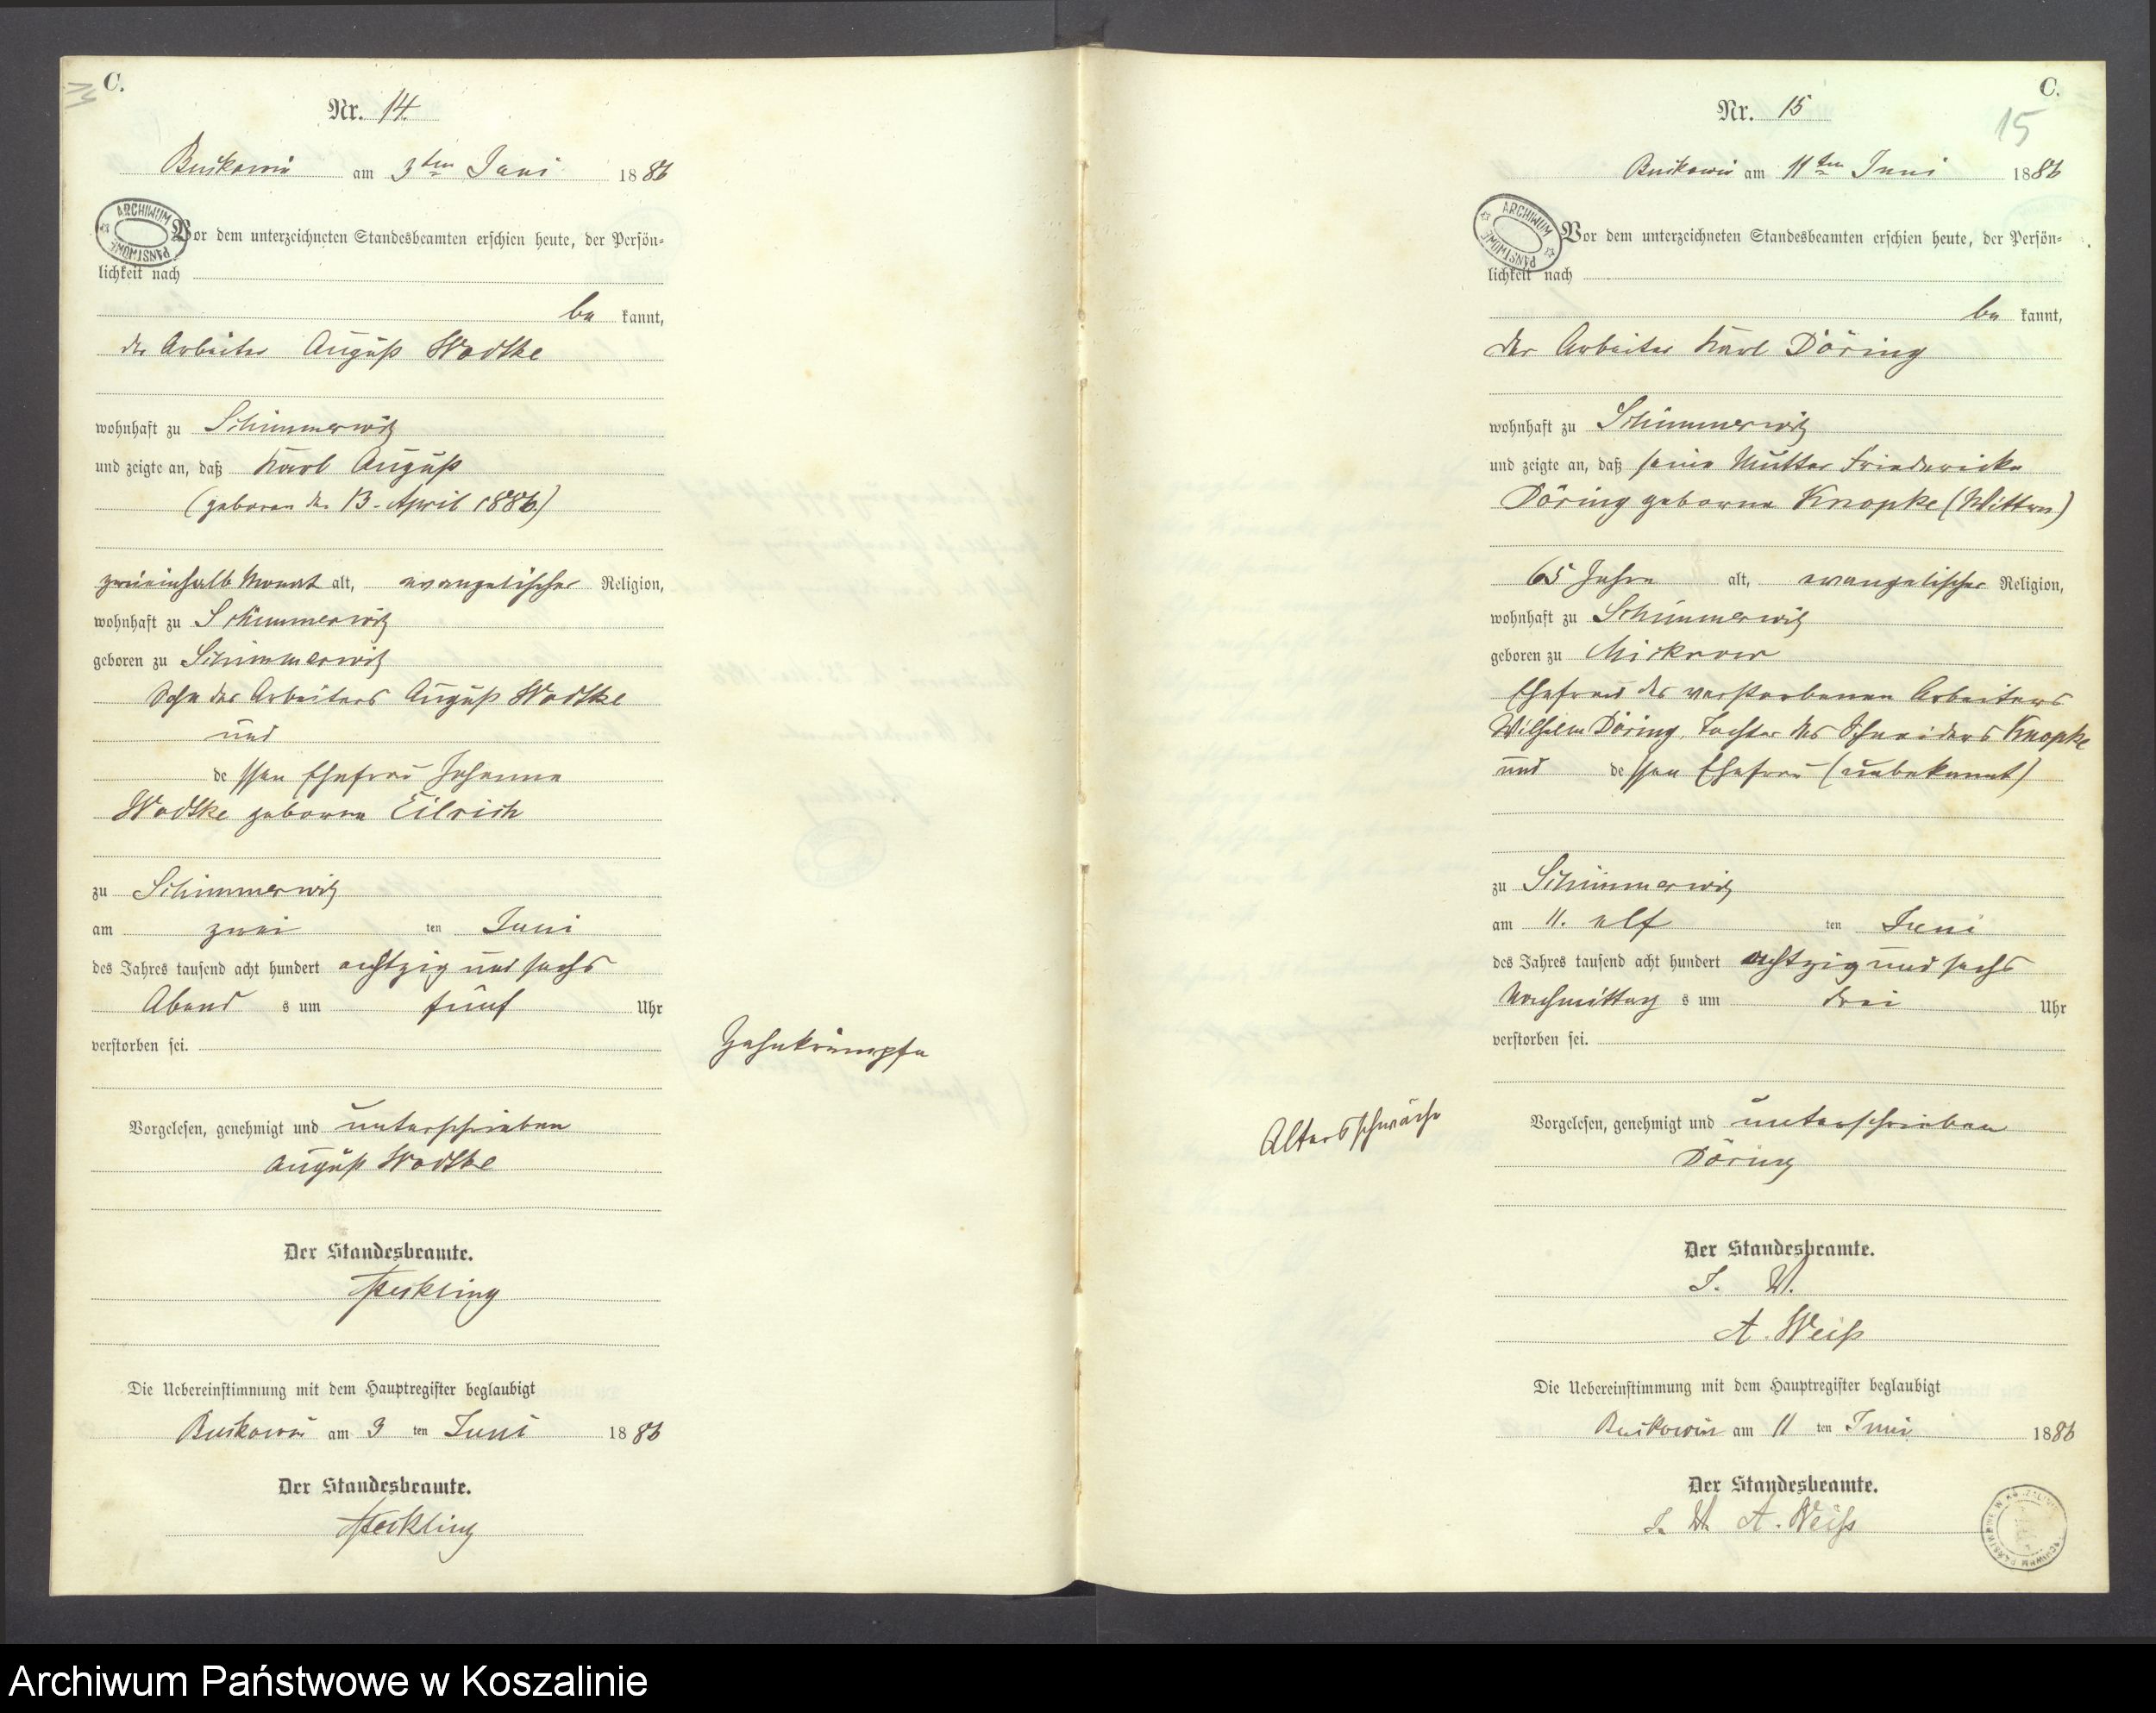 C.
Nr. 14.
Buckowin am 3ten Juni 1886
ARCHIWUM PAŃSTWOWE
Vor dem unterzeichneten Standesbeamten erschien heute, der Persön-
lichkeit nach
be kannt,
der Arbeiter August Wodtke
wohnhaft zu Schimmerwitz
und zeigte an, daß Karl August
(geboren den 13. April 1886)
zweieinhalb Monat alt, evangelischer Religion,
wohnhaft zu Schimmerwitz
geboren zu Schimmerwitz
Sohn des Arbeiters August Wodtke
und
de ssen Ehefrau Johanna
Wodtke geborne Eilrich
zu Schimmerwitz
am zwei ten Juni
des Jahres tausend acht hundert achtzig und sechs
Abend s um fünf Uhr
verstorben sei.
Zahnkrämpfe
Vorgelesen, genehmigt und unterschrieben
August Wodtke
Der Standesbeamte.
Die Uebereinstimmung mit dem Hauptregister beglaubigt
Buckowin am 3 ten Juni 1886
Der Standesbeamte.
C.
Nr. 15
15
Buckowin am 11ten Juni 1886
ARCHIWUM PAŃSTWOWE
Vor dem unterzeichneten Standesbeamten erschien heute, der Persön-
lichkeit nach
be kannt,
der Arbeiter Karl Döring
wohnhaft zu Schimmerwitz
und zeigte an, daß seine Mutter Friedericke
Döring geborne Knopke (Wittwe)
65 Jahre alt, evangelischer Religion,
wohnhaft zu Schimmerwitz
geboren zu Mickrow
Ehefrau des verstorbenen Arbeiters
Wilhelm Döring, Tochter des Schneiders Knopke
und de ssen Ehefrau (unbekannt)
zu Schimmerwitz
am 11. elf ten Juni
des Jahres tausend acht hundert achtzig und sechs
Nachmittag s um drei Uhr
verstorben sei.
Altersschwäche
Vorgelesen, genehmigt und unterschrieben
Döring
Der Standesbeamte.
I. V.
A. Weiß
Die Uebereinstimmung mit dem Hauptregister beglaubigt
Buckowin am 11 ten Juni 1886
Der Standesbeamte.
I. V. A. Weiß
Archiwum Państwowe w Koszalinie